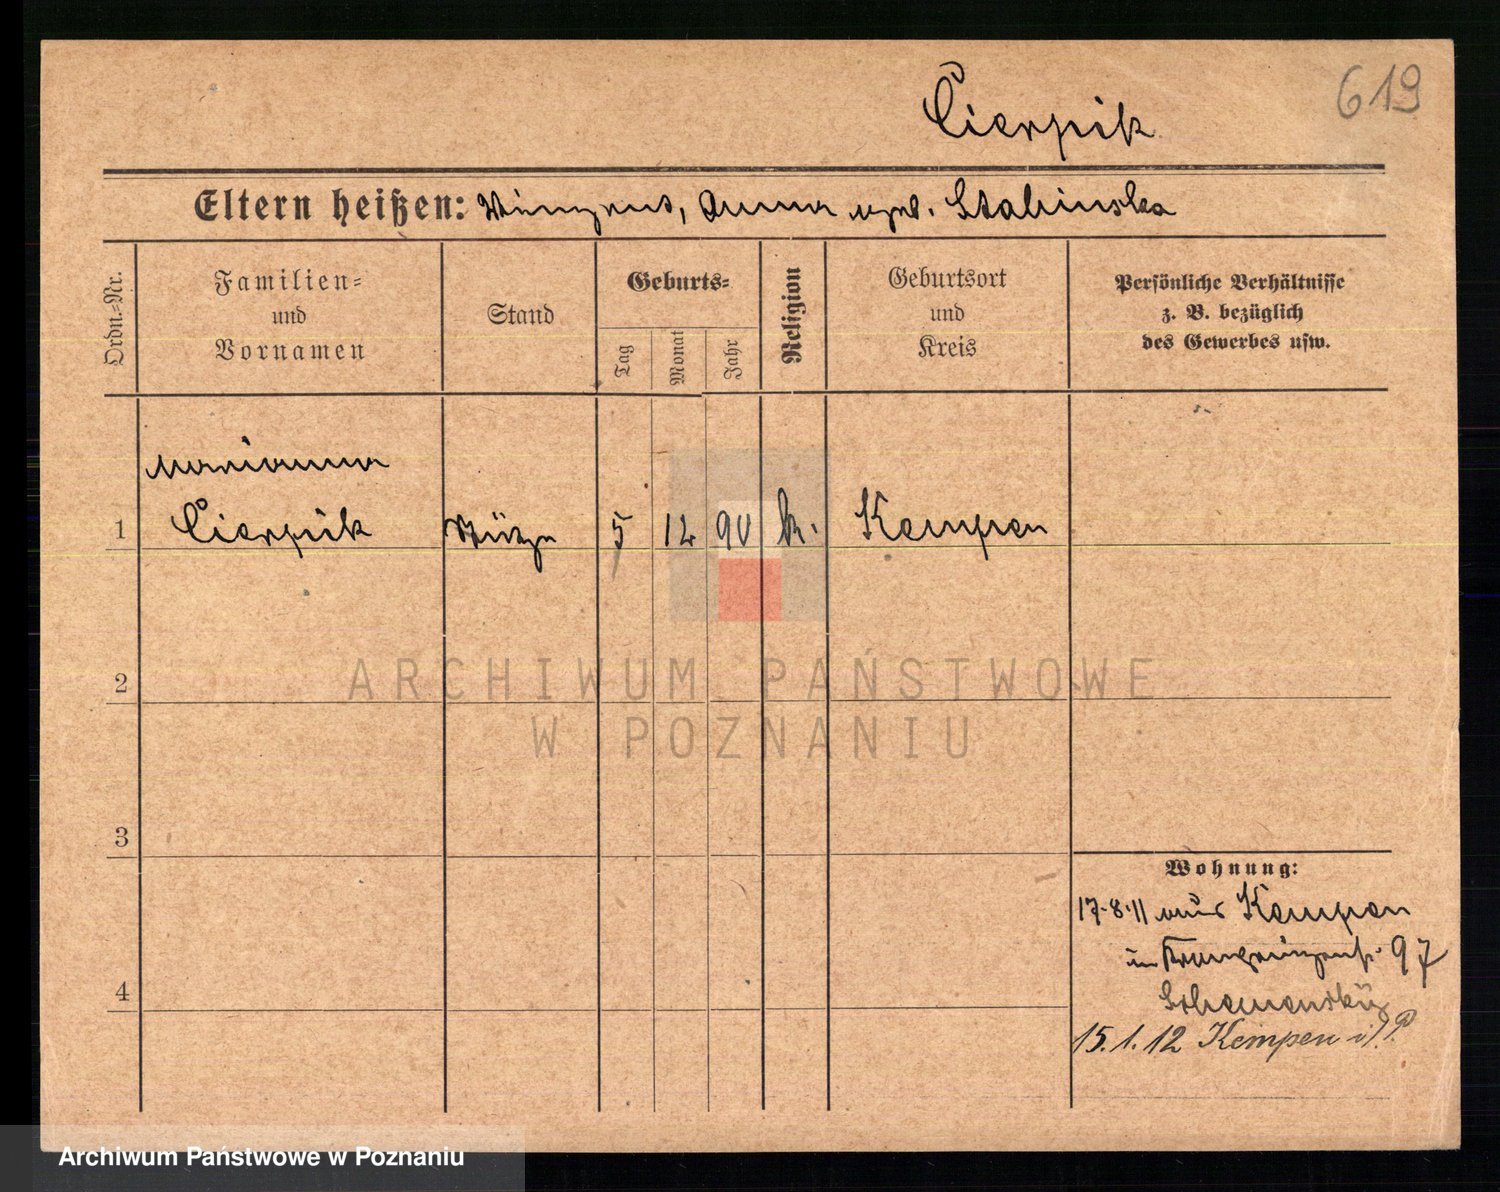 619
Cierpik
Eltern heißen: Vinzent, Anna geb. Stabinska
Ordn.-Nr.
Familien-
und
Vornamen
Stand
Geburts-
Tag
Monat
Jahr
Religion
Geburtsort
und
Kreis
Persönliche Verhältnisse
z. B. bezüglich
des Gewerbes usw.
Marianna
1 Cierpik Stütze 5 12 90 k. Kempen
2
ARCHIWUM PAŃSTWOWE
W POZNANIU
3
Wohnung:
17.8.11 aus Kempen
in Kronprinzenst. 97
4
15.1.12 Kempen i/P.
Archiwum Państwowe w Poznaniu